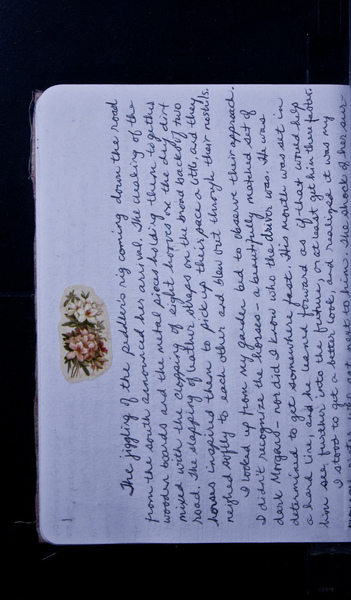 The jiggling of the peddler's rig coming down the road
from the south announced his arrival. The creaking of the
wooden boards and the metal pieces holding them together
mixed with the clopping of eight hooves on the dry dirt
road. The slapping of leather straps on the broad backs of two
horses inspired them to pick up their pace a little, and they
neighed softly to each other and blew out through their nostrils.
I looked up from my garden bed to observe their approach.
I didn't recognize the horses - a beautifully matched set of
dark Morgans - nor did I know who the driver was. He was
determined to get somewhere fast. His mouth was set in
a hard line, and he leaned forward as if that would help
him see farther into the future, or at least get him there faster.
I stood to get a better look, and realized it was my
who sat next to him. The shock of her sur-